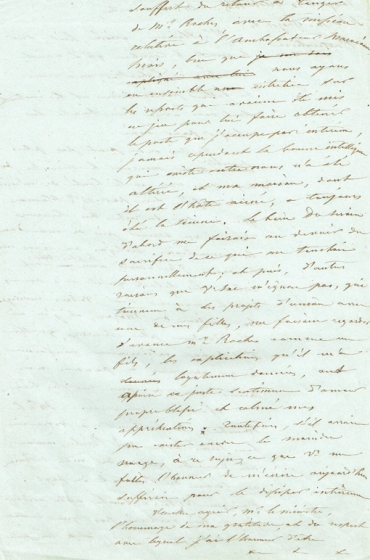 souffert du retour à Tanger
de Mr. Roches avec la mission
relative à l'ambassadeur
mais, bien que je me sois
expliqué avec lui nous ayons
eu ensemble une entretien sur
les efforts qui avaient été mis
en jeu pour lui faire obtenir
le poste que j'occupe par interim,
jamais cependant la bonne intelligence
qui existe entre nous n'a été
altérée, et ma maison, dont
il est l'hôte, a toujours
été la sienne. Le bien du
d'abord me faisait un devoir du
sacrifice de ce qui me touchait
personnellement; et puis, d'autres
raisons que V. Exce n'ignore pas, qui
tiennent à des projets d'union avec
une de mes filles, me faisaient regarder
d'avance Mr. Roches comme un
fils, les explications qu'il m'a
données loyalement, ont
apaisé ce juste sentiment d'amour
propre blessé et
appréciations. Toutefois, s'il
pu exister encore le moindre
nuage, à ce sujet, ce que V. me
fait l'honneur de m'écrire aujourd'hui
suffirait pour le dissiper entièrement
Veuillez agréer, Mr. le ministre,
l'hommage de ma gratitude et du respect
avec lequel j'ai l'honneur d'être